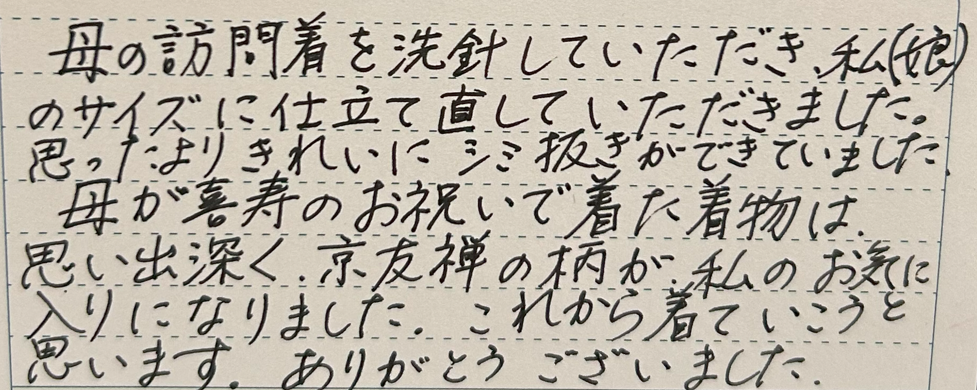 母の訪問着を洗針していただき、私(娘)
のサイズに仕立て直していただきました。
思ったよりきれいにシミ抜きができていました
母が喜寿のお祝いで着た着物は、
思い出深く、京友禅の柄が、私のお気に
入りになりました。これから着ていこうと
思います。ありがとうございました。